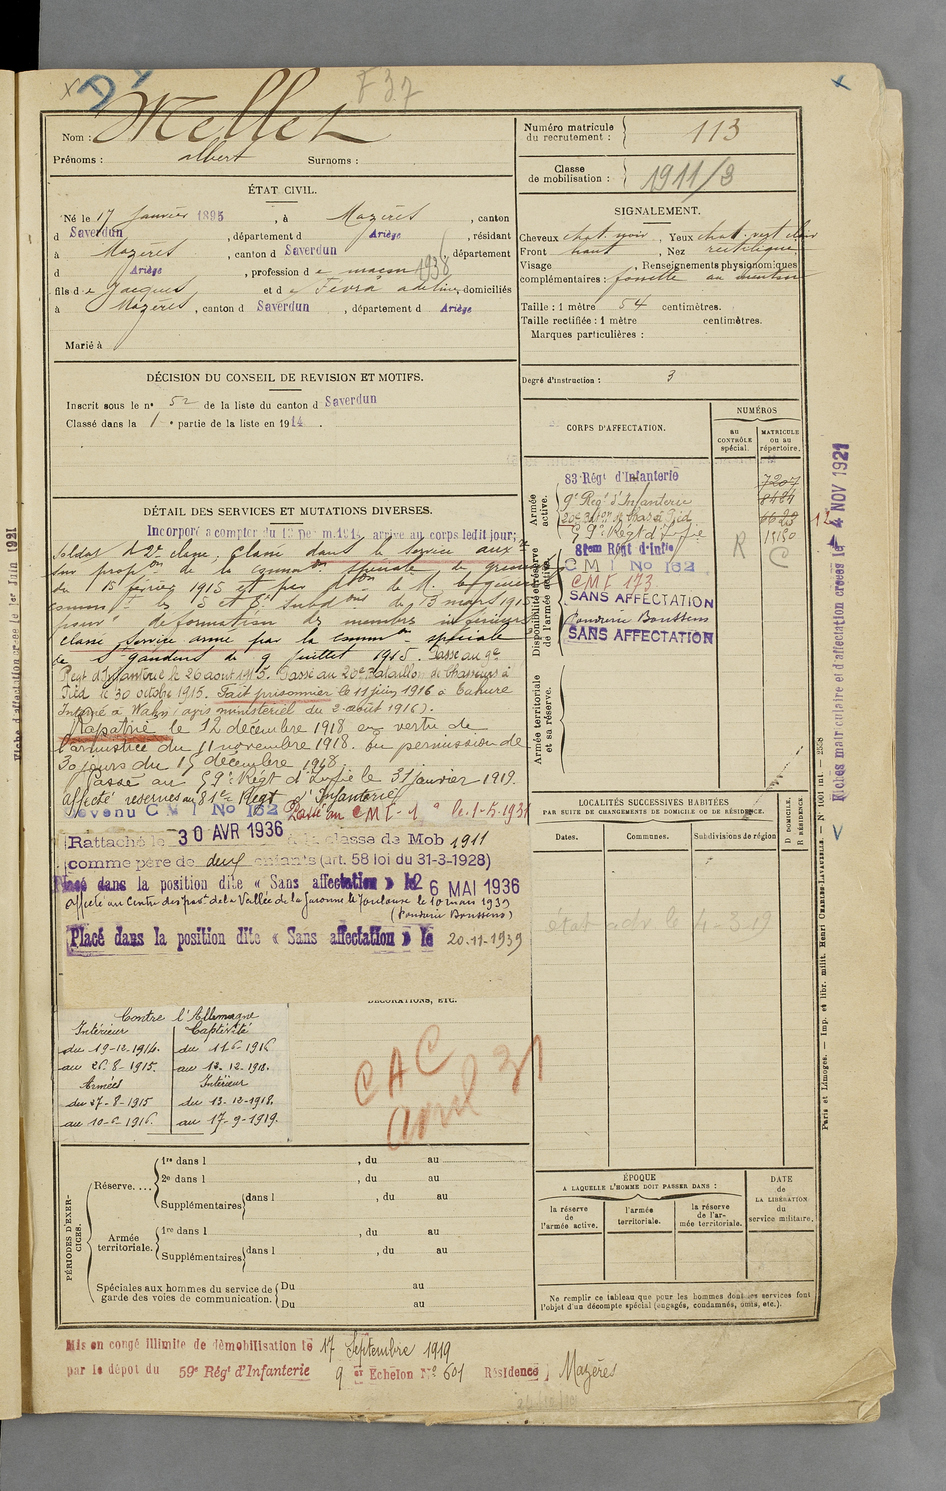 F37
Nom : Mellet
Prénoms : albert Surnoms :
Numéro matricule du recrutement : 113
Classe de mobilisation : 1911/3
ÉTAT CIVIL.
Né le 17 Janvier 1895, à Mazères, canton
d Saverdun, département d Ariège, résidant
à Mazères, canton d Saverdun département
d Ariège, profession d e maçon 1938
fils d e Jacques et d e Fevra adeline, domiciliés
à Mazères, canton d Saverdun, département d Ariège
Marié à
SIGNALEMENT.
Cheveux chat. noir, Yeux chat. vert clair
Front haut, Nez rectiligne
Visage , Renseignements physionomiques
complémentaires : fossette au menton
Taille : 1 mètre 54 centimètres.
Taille rectifiée : 1 mètre centimètres.
Marques particulières :
Degré d'instruction : 3
DÉCISION DU CONSEIL DE REVISION ET MOTIFS.
Inscrit sous le n° 52 de la liste du canton d Saverdun
Classé dans la 1 e partie de la liste en 1914.
DÉTAIL DES SERVICES ET MUTATIONS DIVERSES.
Incorporé a compter du arrivé au corps ledit jour;
Soldat de 2e classe, Classé dans le Service aux re
sur propon de la common spéciale de
du 15 février 1915 et
des 3 mars 1915
pour deformation des membres
classé service armé par la common spéciale
de St Gaudens du 9 Juillet 1915. Passé au 9e
Regt d'Infanterie le 26 aout 1915. Passé au 20e Bataillon de Chasseurs à
Pied le 30 octobre 1915. Fait prisonnier le 11 juin 1916 à Tahure
Interné à Wahn (avis ministériel du 2 août 1916).
Rapatrié le 12 décembre 1918 en vertu de
l'armistice du 11 novembre 1918. En permission de
30 jours du 15 décembre 1918.
Passé au 59e Régt d'Infie le 31 janvier 1919.
affecté reserves au 81e Regt d'Infanterie
devenu C M I No 162 Passé au C M I - 1 le 1-5-1931
Rattaché le 30 AVR 1936 à la classe de Mob 1911
comme père de deux enfants (art. 58 loi du 31-3-1928)
Placé dans la position dite « Sans affectation » le 26 MAI 1936
affecté au Centre des de la Vallée de la Garonne le Toulouse le 10 mars 1939
(Fonderie Boussens)
Placé dans la position dite « Sans affectation » le 20-11-1939
CORPS D'AFFECTATION.
NUMÉROS
au CONTRÔLE spécial.
MATRICULE ou au répertoire.
Armée active.
83 Régt d'Infanterie 7207
9e Regt d'Infanterie 8484
20e Baton de Chas à Pied 6623
59e Régt d'Infie 15180
R C
Disponibilité et réserve de l'armée active.
81eme Régt d'Infie
C M I No 162
C M F 173
SANS AFFECTATION
Fonderie Boussens
SANS AFFECTATION
Armée territoriale et sa réserve.
LOCALITÉS SUCCESSIVES HABITÉES
PAR SUITE DE CHANGEMENTS DE DOMICILE OU DE RÉSIDENCE.
Dates. Communes. Subdivisions de région
D DOMICILE. R RÉSIDENCE
état adr. le 4-3-19
DÉCORATIONS, ETC.
Contre l'Allemagne
Intérieur Captivité
du 19-12-1914. du 11-6-1916
au 26-8-1915. au 12-12-1918.
Armées Intérieur
du 27-8-1915 du 13-12-1918.
au 10-6-1916. au 17-9-1919.
CAC
avril 31
PÉRIODES D'EXERCICES.
Réserve....
1re dans l , du au
2e dans l , du au
Supplémentaires dans l , du au
Armée territoriale.
1re dans l , du au
Supplémentaires dans l , du au
Spéciales aux hommes du service de garde des voies de communication.
Du au
Du au
ÉPOQUE
A LAQUELLE L'HOMME DOIT PASSER DANS :
la réserve de l'armée active.
l'armée territoriale.
la réserve de l'armée territoriale.
DATE de LA LIBÉRATION du service militaire.
Ne remplir ce tableau que pour les hommes dont les services font
l'objet d'un décompte spécial (engagés, condamnés, omis, etc.).
Mis en congé illimité de démobilisation le 17 Septembre 1919
par le dépot du 59e Régt d'Infanterie 9 er Échelon No 601 Résidence Mazères
Fiche d'affectation créée le 1er Juin 1921
Fiches matriculaire et d'affectation créées le 4 NOV 1921
Paris et Limoges. — Imp. et libr. milit. Henri CHARLES-LAVAUZELLE. — N° 1001 int. — 2558